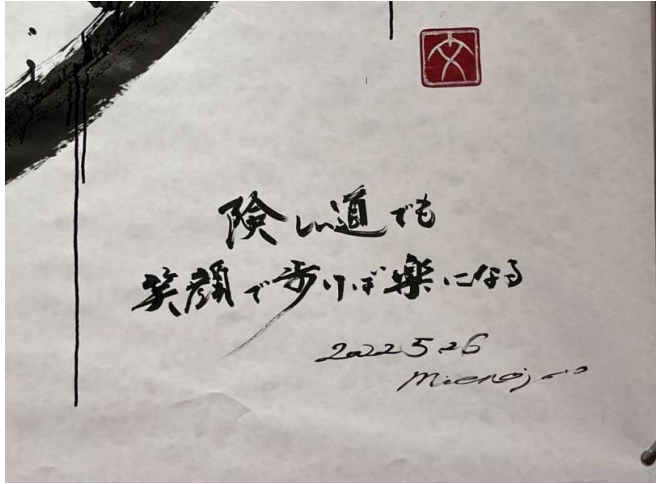 文
険しい道でも
笑顔で歩けば楽になる
2022 5.26